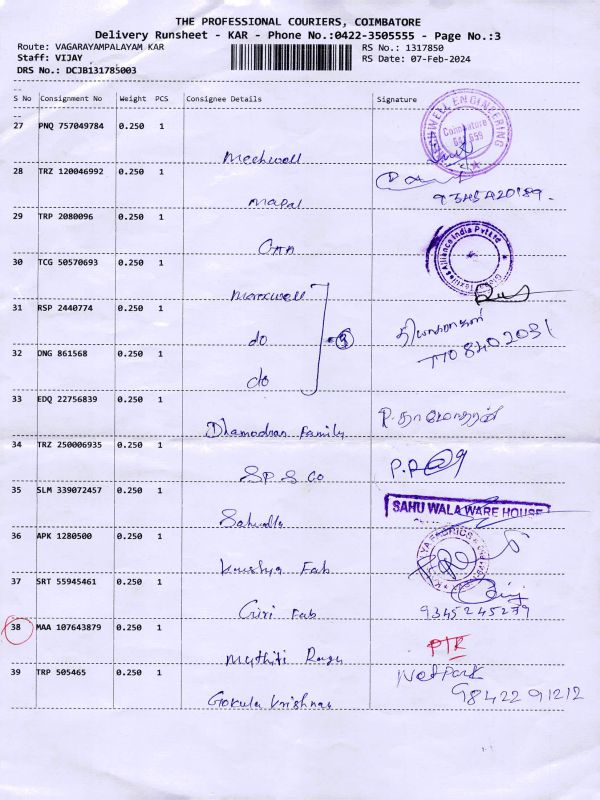 THE PROFESSIONAL COURIERS, COIMBATORE
Delivery Runsheet - KAR - Phone No.:0422-3505555 - Page No.:3
Route: VAGARAYAMPALAYAM KAR RS No.: 1317850
Staff: VIJAY RS Date: 07-Feb-2024
DRS No.: DCJB131785003
S No Consignment No Weight PCS Consignee Details Signature
27 PNQ 757049784 0.250 1
WELL ENGINEERING
Coimbatore
641 659
Meckwell
28 TRZ 120046992 0.250 1
Mapal
29 TRP 2080096 0.250 1
Alliance India Pvt Ltd
GAA
30 TCG 50570693 0.250 1
Marxwell
31 RSP 2440774 0.250 1
do 3
32 DNG 861568 0.250 1
do
33 EDQ 22756839 0.250 1
Dhamodran Family
34 TRZ 250006935 0.250 1
SPS Co
35 SLM 339072457 0.250 1
SAHU WALA WARE HOUSE
Sahuwalla
36 APK 1280500 0.250 1
FABRICS
Kaushya Fab
37 SRT 55945461 0.250 1
Giri Fab 9345245239
38 MAA 107643879 0.250 1
PTR
39 TRP 505465 0.250 1
98422 91212
Gokula Krishnan